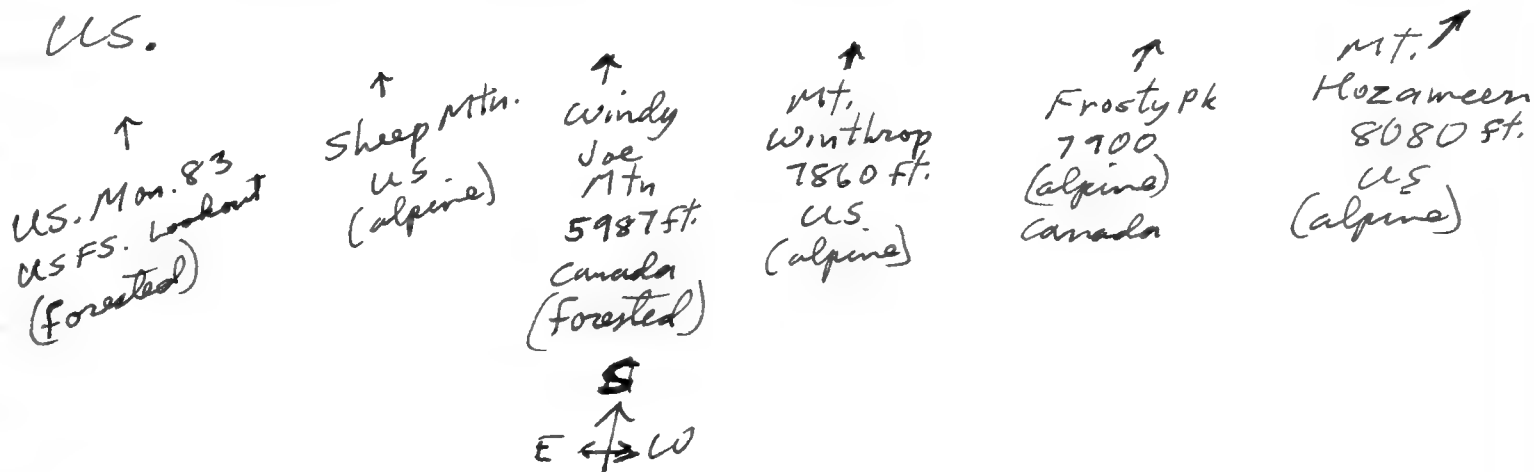 US.
U.S. Mon. 83
USFS. Lookout
(forested)
Sheep Mtn.
US.
(alpine)
Windy
Joe
Mtn
5987 ft.
Canada
(forested)
Mt.
Winthrop
7860 ft.
US.
(alpine)
Frosty Pk
7900
(alpine)
Canada
Mt.
Hozameen
8080 ft.
US
(alpine)
S
E W